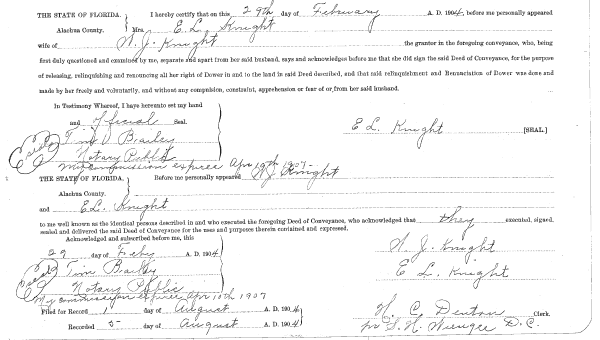 THE STATE OF FLORIDA. I hereby certify that on this 29th day of February A. D. 1904, before me personally appeared
Alachua County. Mrs. E. L. Knight
wife of W. J. Knight the grantor in the foregoing conveyance, who, being
first duly questioned and examined by me, separate and apart from her said husband, says and acknowledges before me that she did sign the said Deed of Conveyance, for the purpose
of releasing, relinquishing and renouncing all her right of Dower in and to the land in said Deed described, and that said relinquishment and Renunciation of Dower was done and
made by her freely and voluntarily, and without any compulsion, constraint, apprehension or fear of or from her said husband.
In Testimony Whereof, I have hereunto set my hand
and official Seal. E L. Knight [SEAL.]
Tim Brarley
Notary Public
My commission expires Apr 10th 1907
THE STATE OF FLORIDA. Before me personally appeared W. J. Knight
Alachua County.
and E. L. Knight
to me well known as the identical persons described in and who executed the foregoing Deed of Conveyance, who acknowledged that they executed, signed,
sealed and delivered the said Deed of Conveyance for the uses and purposes therein contained and expressed.
Acknowledged and subscribed before me, this W. J. Knight
29 day of Feby A. D. 1904 E L. Knight
Tim Brarley
Notary Public
My commission expires Apr 10th 1907
Filed for Record 1 day of August A. D. 1904 H. C. Denton Clerk.
Recorded 5 day of August A. D. 1904 pr S. H. Wienges D. C.